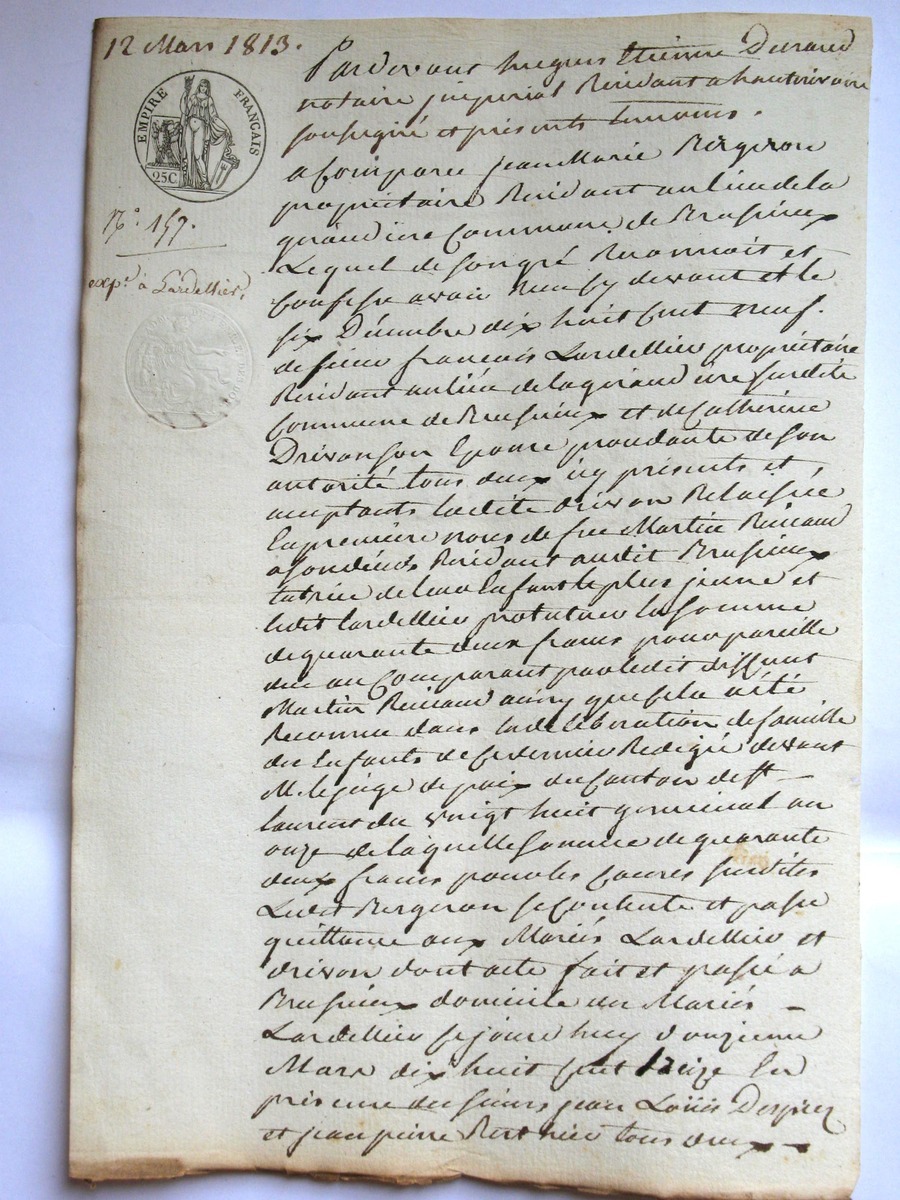 12 Mars 1813.
EMPIRE FRANÇAIS
25C
N.° 157.
exp.e à Lardellier,
Pardevant Etienne Durand
notaire imperial Residant a hauterivoire
soussigné et presents temoins.
a Comparu jean Marie Bergeron
proprietaire Residant au lieu de la
giraudiere Commune de Brussieux
Lequel de son gré Reconnoit et
Confesse avoir Reçu cy devant et le
six Décembre dix huit cent neuf.
de sieur françois Lardellier propriétaire
Residant au lieu de la giraudiere susdite
Commune de Brussieux et de Catherine
Drivon son Epouse procedante de son
autorité tous deux icy présents et
acceptants ladite drivon Relaissée
En premiere noces de feu Martin
a son décès Residant audit Brussieux
tutrice de leur Enfant le plus jeune et
ledit Lardellier protuteur la somme
de quarante deux francs pour pareille
due au Comparant par ledit deffunt
Martin ainsy que cela a été
Reconnu dans la deliberation de famille
des Enfants de ce dernier Redigée devant
M. le juge de paix du Canton de St
laurent du vingt huit germinal an
onze de laquelle somme de quarante
deux francs pour les Causes susdites
Ledit Bergeron se Contente et passe
quittance aux Mariés Lardellier et
drivon dont acte fait et passé a
Brussieux domicile des Mariés
Lardellier ce jourd'huy douzieme
Mars dix huit cent treize En
présence des sieurs jean Loüis
et jean pierre tous deux